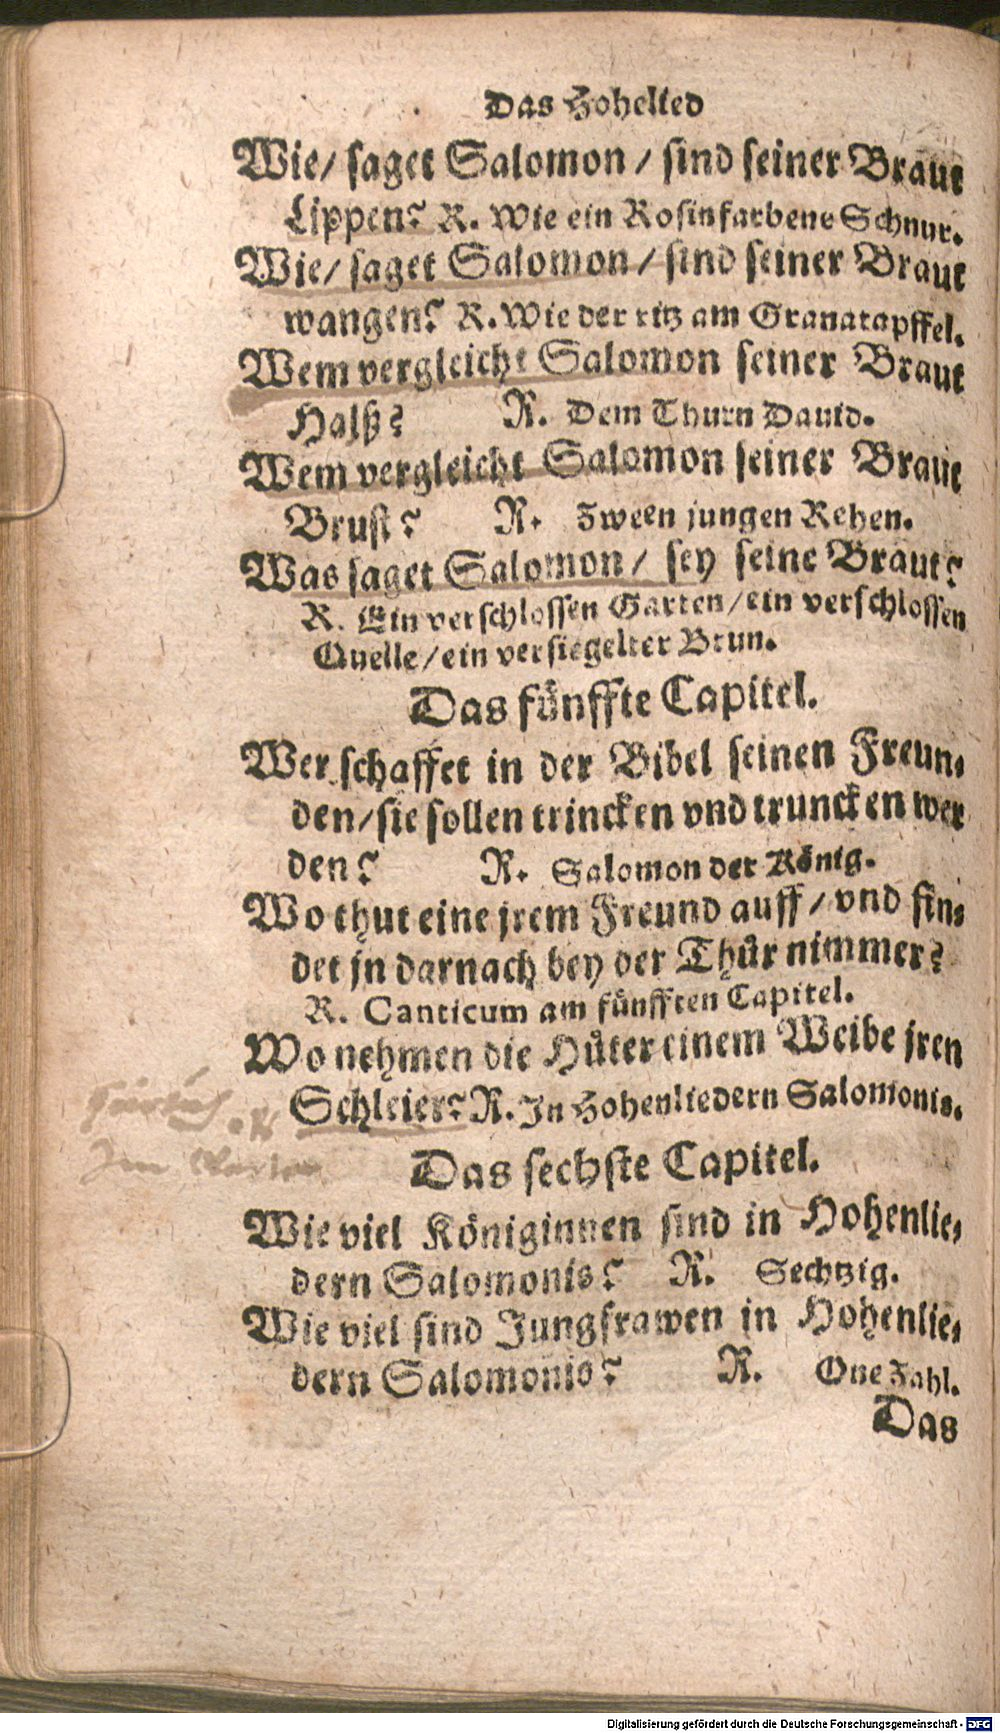 Das Hohelied
Wie/ saget Salomon / sind seiner Braut
Lippen? R. Wie ein Rosinfarbene Schnur.
Wie/ saget Salomon / sind seiner Braut
wangen? R. Wie der ritz am Granatapffel.
Wem vergleicht Salomon seiner Braut
Halß? R. Dem Thurn Dauid.
Wem vergleicht Salomon seiner Braut
Brust? R. Zween jungen Rehen.
Was saget Salomon / sey seine Braut?
R. Ein verschlossen Garten/ein verschlossen
Quelle/ein versiegelter Brun.
Das fünffte Capitel.
Wer schaffet in der Bibel seinen Freun⸗
den/sie sollen trincken vnd truncken wer
den? R. Salomon der König.
Wo thut eine jrem Freund auff / vnd fin⸗
det jn darnach bey der Thür nimmer?
R. Canticum am fünfften Capitel.
Wo nehmen die Hüter einem Weibe jren
Schleier? R. In Hohenliedern Salomonis.
Das sechste Capitel.
Wie viel Königinnen sind in Hohenlie⸗
dern Salomonis? R. Sechtzig.
Wie viel sind Jungfrawen in Hohenlie⸗
dern Salomonis? R. One Zahl.
Das
Digitalisierung gefördert durch die Deutsche Forschungsgemeinschaft - DFG